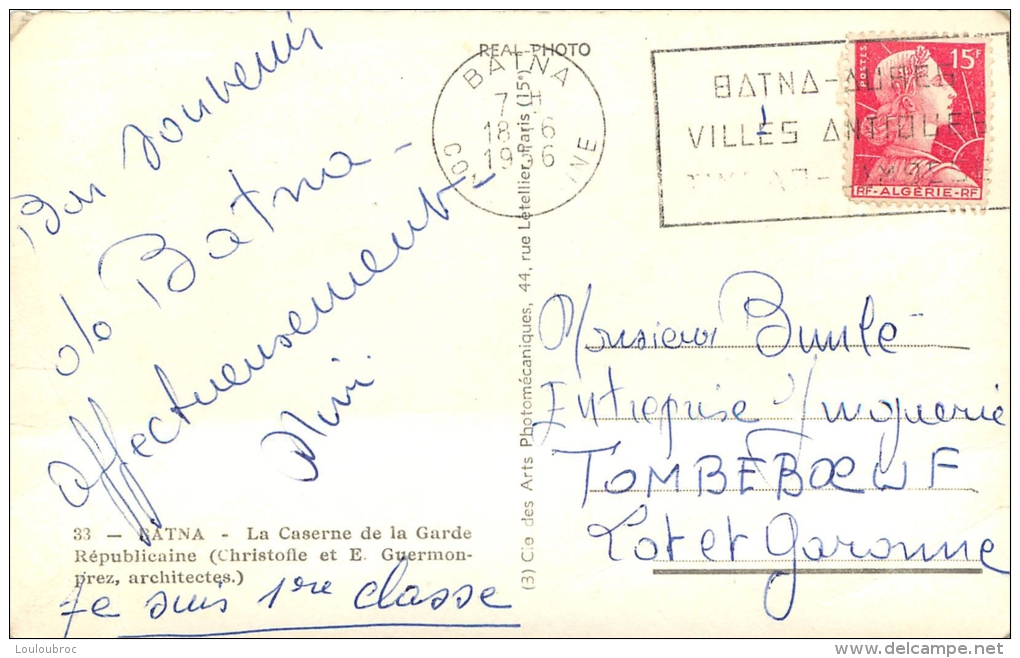 Bon souvenir
de Batna -
Affectueusement -
Mimi
33 — BATNA - La Caserne de la Garde
Républicaine (Christofle et E. Guermon-
prez, architectes.)
Je suis 1ère classe
REAL-PHOTO
(3) Cie des Arts Photomécaniques, 44, rue Letellier, Paris (15e)
BATNA
7 H
18 - 6
19 6
BATNA-AURES
VILLES ANTIQUES
POSTES
15F
RF-ALGÉRIE-RF
Monsieur
Entreprise
TOMBEBŒUF
Lot et Garonne
Louloubroc
www.delcampe.net